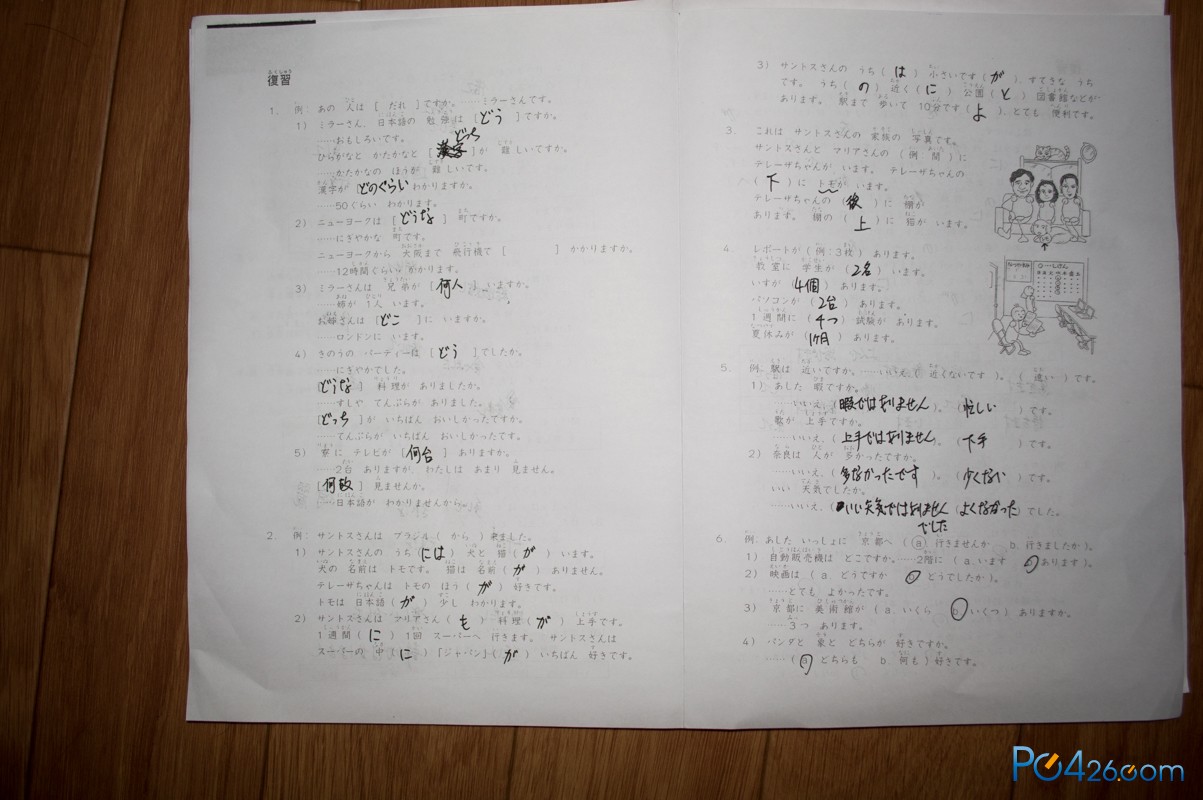 ふくしゅう
復習
1. 例：あの 人は [ だれ ] ですか。……ミラーさんです。
1) ミラーさん、日本語の 勉強は [どう ] ですか。
……おもしろいです。
どっち
ひらがなと かたかなと [ ] が 難しいですか。
……かたかなの ほうが 難しいです。
漢字が [どのぐらい わかりますか。
……50ぐらい わかります。
2) ニューヨークは [どうな ] 町ですか。
……にぎやかな 町です。
ニューヨークから 大阪まで 飛行機で [ ] かかりますか。
……12時間ぐらい かかります。
3) ミラーさんは 兄弟が [何人 ] いますか。
……姉が 1人 います。
お姉さんは [どこ ] に いますか。
……ロンドンに います。
4) きのうの パーティーは [どう ] でしたか。
……にぎやかでした。
[どうな ] 料理が ありましたか。
……すしや てんぷらが ありました。
[どっち ] が いちばん おいしかったですか。
……てんぷらが いちばん おいしかったです。
5) 寮に テレビが [何台 ] ありますか。
……2台 ありますが、わたしは あまり 見ません。
[何故 ] 見ませんか。
……日本語が わかりませんから。
2. 例：サントスさんは ブラジル ( から ) 来ました。
1) サントスさんの うち (には ) 犬と 猫 (が ) います。
犬の 名前は トモです。 猫は 名前 (が ) ありません。
テレーザちゃんは トモの ほう (が ) 好きです。
トモは 日本語 (が ) 少し わかります。
2) サントスさんは マリアさん ( も ) 料理 (が ) 上手です。
1週間 (に ) 1回 スーパーへ 行きます。 サントスさんは
スーパーの 中 (に ) 「ジャパン」(が ) いちばん 好きです。
3) サントスさんの うち (は ) 小さいです (が )、すてきな うち
です。 うち (の ) 近く (に ) 公園 (と ) 図書館などが
あります。 駅まで 歩いて 10分です (よ )、とても 便利です。
3. これは サントスさんの 家族の 写真です。
サントスさんと マリアさんの ( 例 間 ) に
テレーザちゃんが います。 テレーザちゃんの
(下 ) に トモが います。
テレーザちゃんの (後 ) に 棚が
あります。 棚の (上 ) に 猫が います。
4. レポートが ( 例：3枚 ) あります。
教室に 学生が (2名 ) います。
いすが (4個 ) あります。
パソコンが (2台 ) あります。
1週間に (4つ ) 試験が あります。
夏休みが (1ヶ月 ) あります。
5. 例：駅は 近いですか。……いいえ、( 近くないです )。( 遠い ) です。
1) あした 暇ですか。
……いいえ、(暇ではありません )。(忙しい ) です。
歌が 上手ですか。
……いいえ、(上手ではありません )。(下手 ) です。
2) 奈良は 人が 多かったですか。
……いいえ、(多なかったです )。(少くない ) です。
いい 天気でしたか。
……いいえ、(いい天気ではありません (よくなかった ) でした。
でした
6. 例：あした いっしょに 京都へ ( a. 行きませんか b. 行きましたか )。
1) 自動販売機は どこですか。……2階に ( a. います b. あります )。
2) 映画は ( a. どうですか b. どうでしたか )。
……とても よかったです。
3) 京都に 美術館が ( a. いくら b. いくつ ) ありますか。
……3つ あります。
4) パンダと 象と どちらが 好きですか。
……( a. どちらも b. 何も ) 好きです。
PC426.com